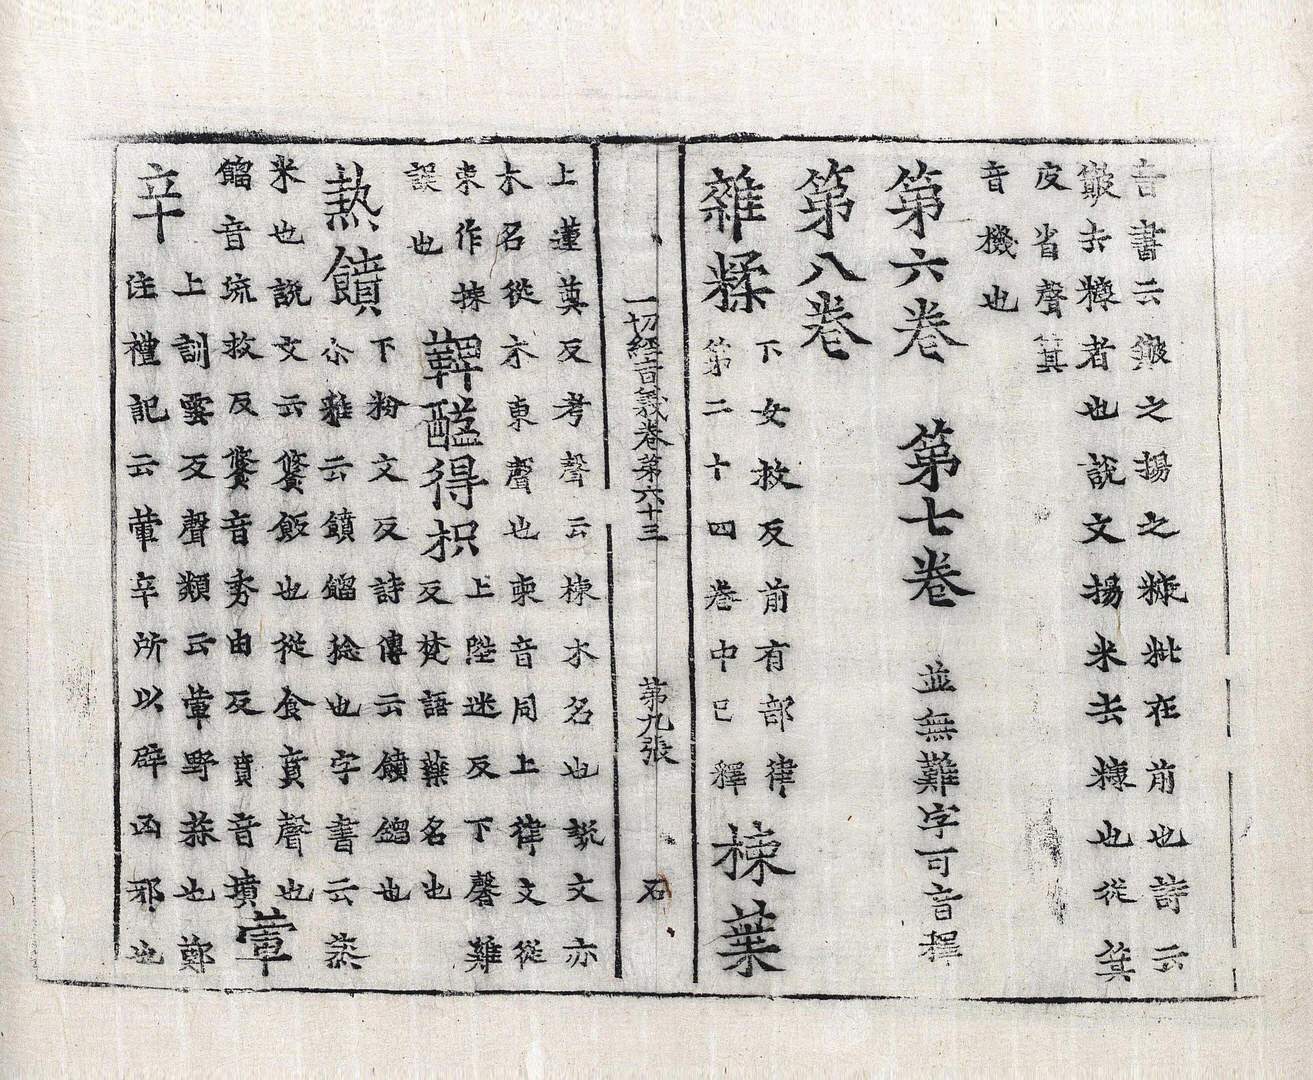 音書云簸之揚之糠粃在前也詩云
簸去糠者也說文揚米去糠也從箕
皮省聲箕
音機也
第六卷 第七卷 並無難字可音釋
第八卷
雜糅 下女救反前有部律
第二十四卷中已釋 楝葉
上蓮奠反考聲云楝木名也說文亦
木名從木東聲也柬音同上律文從
束作揀
誤也
鞞醯得枳 上陛迷反下馨雞
反梵語藥名也
熱饙 下粉文反詩傳云饙餾也
尒雅云饙餾捻也字書云蒸
米也說文云餴飯也從食賁聲也
餾音琉救反餴音秀由反賁音墳 葷
辛 上訓雲反聲類云葷野蒜也鄭
注禮記云葷辛所以辟凶邪也
一切經音義卷第六十三 第九張 石